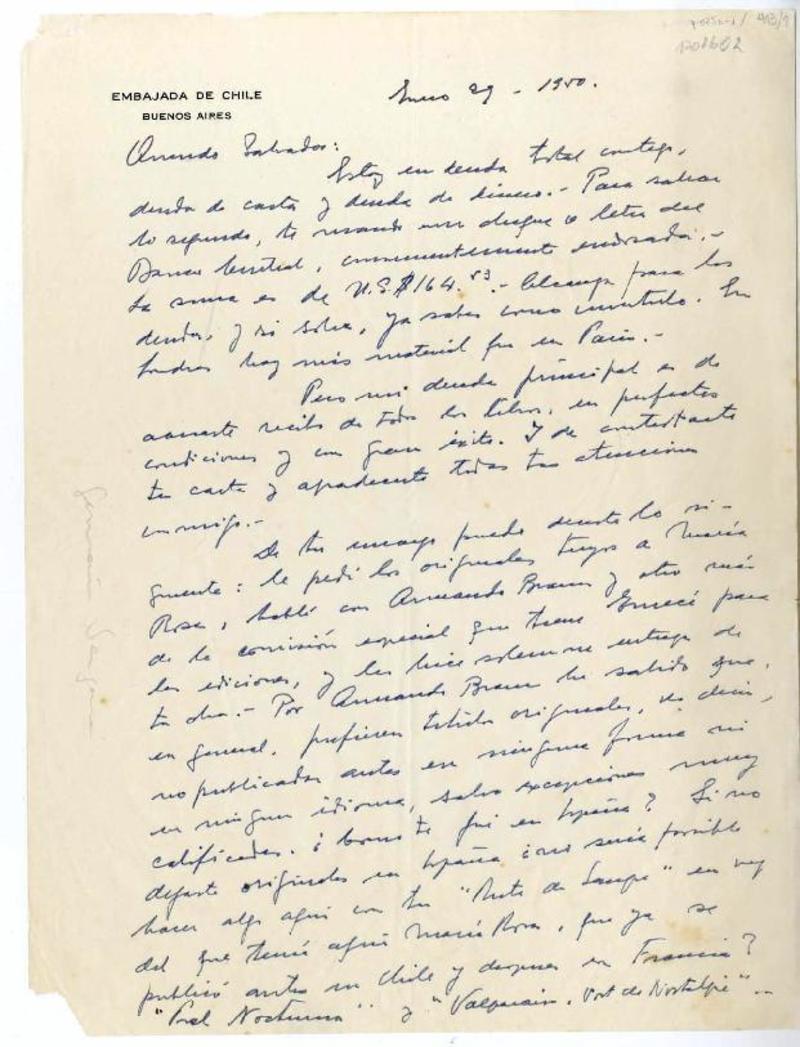 1708602
EMBAJADA DE CHILE
BUENOS AIRES
Enero 29 - 1950.
Querido Salvador:
Estoy en deuda total contigo,
deuda de carta y deuda de dinero.- Para salvar
lo segundo, te mando un cheque o letra del
Banco Central, convenientemente endosada.-
La suma es de U.S.$164.53.- Alcanza para las
deudas, y si sobra, ya sabes como invertirlo. En
Londres hay más material que en Paris.-
Pero mi deuda principal es de
acusarte recibo de todos los libros, en perfectas
condiciones y con gran éxito. Y de contestarte
tu carta y agradecerte todas tus atenciones
conmigo.-
De tu encargo puedo decirte lo si-
guiente: le pedí los originales tuyos a María
Rosa, hablé con Armando Braun y otro más
de la comisión especial que tiene Emecé para
las ediciones, y les hice solemne entrega de
tu obra.- Por Armando Braun he sabido que,
en general, prefieren títulos originales, es decir,
no publicados antes en ninguna forma ni
en ningun idioma, salvo excepciones muy
calificadas. ¿Como te fué en España? Si no
dejaste originales en España ¿no sería posible
hacer algo aquí con tu "Ruta de Sangre" en vez
del que tenía aquí María Rosa, que ya se
publicó antes en Chile y despues en Francia?
"Piel Nocturna" y "Valparaiso, Port de Nostalgie"..
Germán Vergara